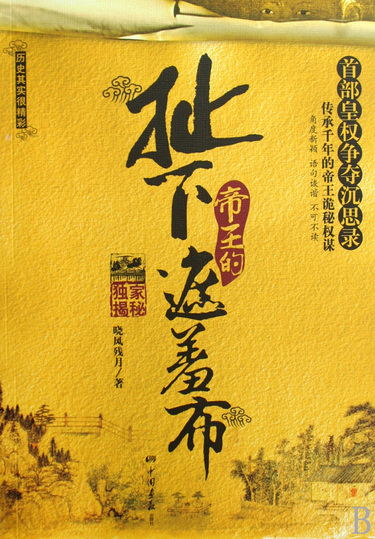 首部皇权争夺沉思录
传承千年的帝王诡秘权谋
角度新颖 语句诙谐 不可不读
历史其实很精彩
扯下
帝王的
遮羞布
独家
揭秘
晓风残月/著
中国画报
B